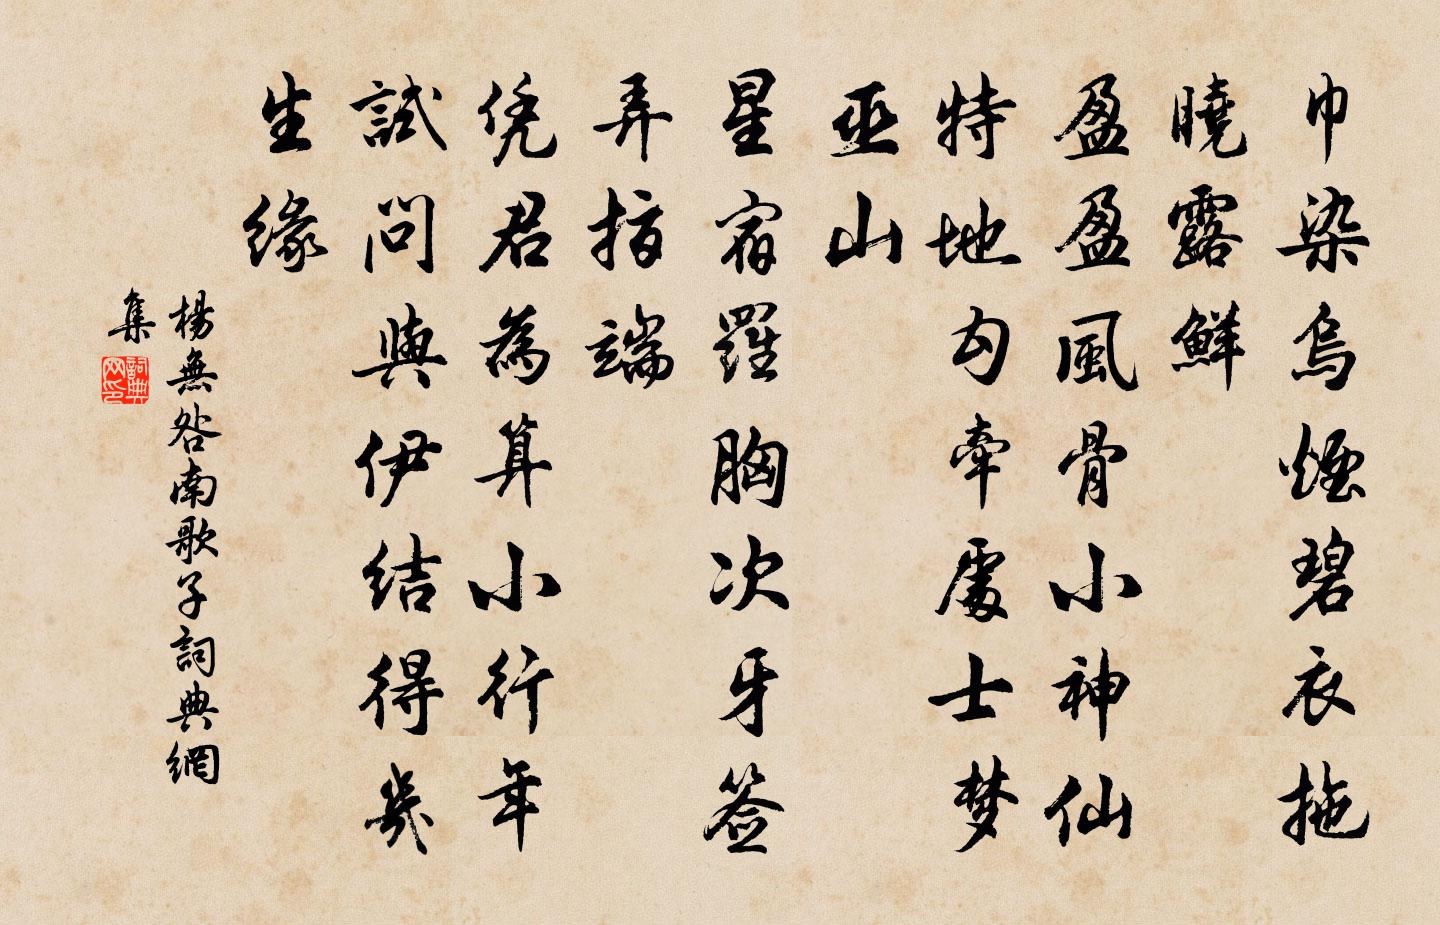 巾染烏煙碧衣拖
曉露鮮
盈盈風骨小神仙
特地勾牽處士梦
巫山
星宿羅胸次牙签
弄指端
凭君為算小行年
試問與伊结得幾
生缘
楊無咎南歌子詞典網
集
詞典
网印